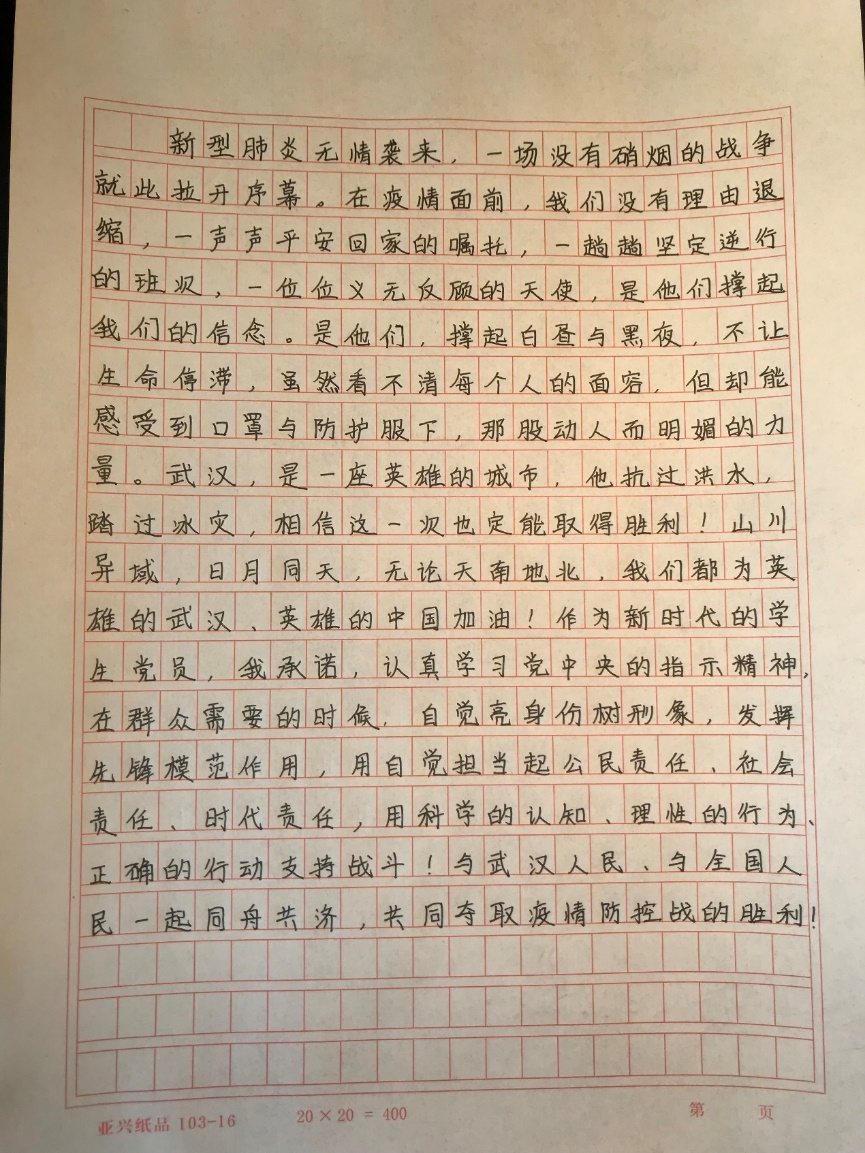 新型肺炎无情袭来，一场没有硝烟的战争
就此拉开序幕。在疫情面前，我们没有理由退
缩，一声声平安回家的嘱托，一趟趟坚定逆行
的班次，一位位义无反顾的天使，是他们撑起
我们的信念。是他们，撑起白昼与黑夜，不让
生命停滞，虽然看不清每个人的面容，但却能
感受到口罩与防护服下，那股动人而明媚的力
量。武汉，是一座英雄的城市，他抗过洪水，
踏过冰灾，相信这一次也定能取得胜利！山川
异域，日月同天，无论天南地北，我们都为英
雄的武汉、英雄的中国加油！作为新时代的学
生党员，我承诺，认真学习党中央的指示精神，
在群众需要的时候，自觉亮身份树形象，发挥
先锋模范作用，用自觉担当起公民责任、社会
责任、时代责任，用科学的认知、理性的行为、
正确的行动支持战斗！与武汉人民、与全国人
民一起同舟共济，共同夺取疫情防控战的胜利！
亚兴纸品 103-16 20×20=400 第 页